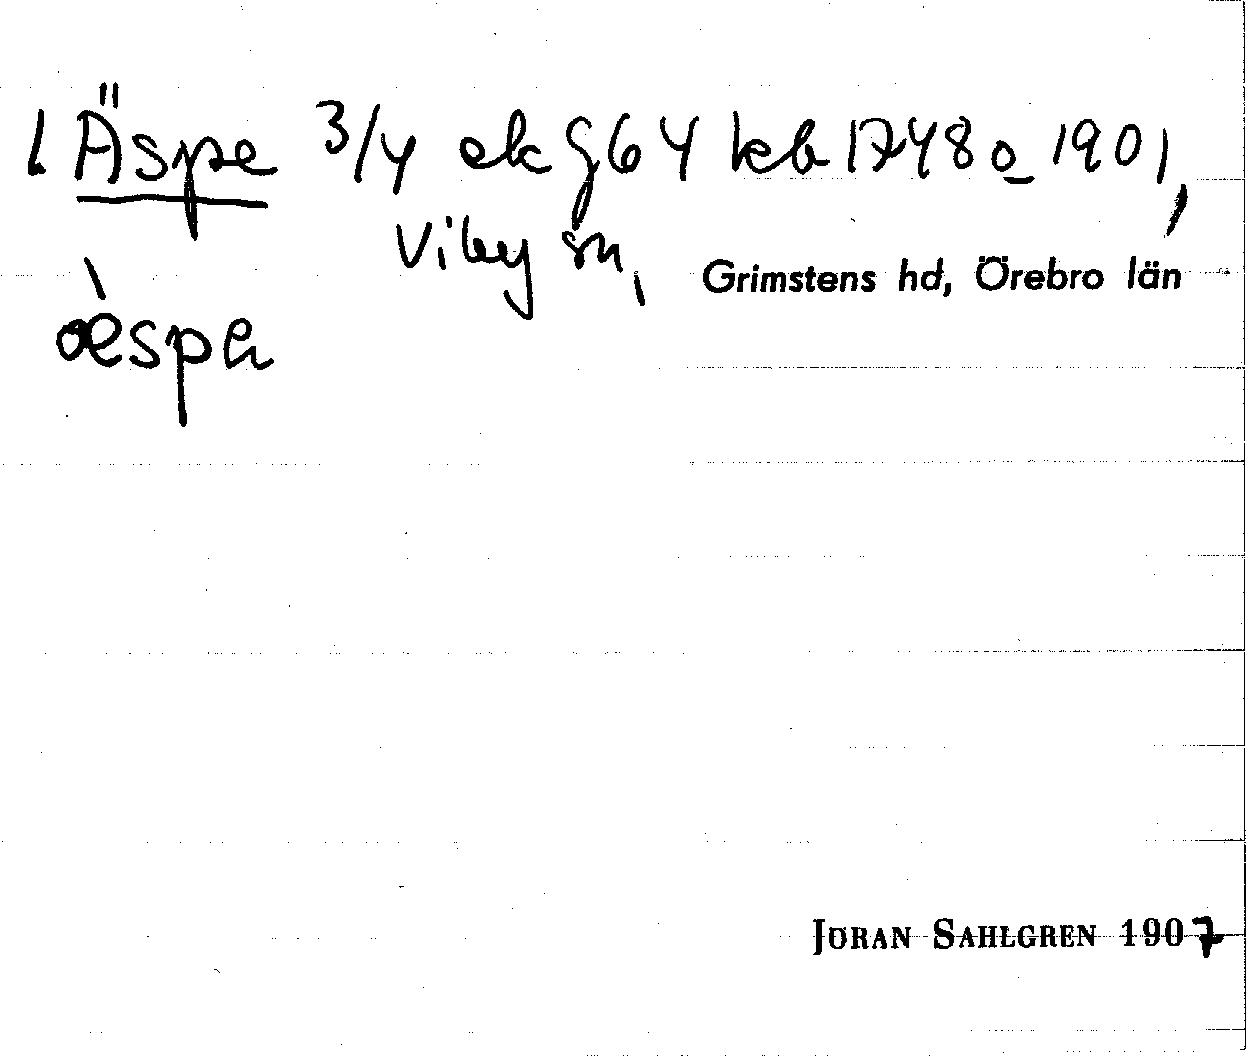 1 Äspe 3/4 ek g 64 kb 1748 o 1901,
Viby sn, Grimstens hd, Örebro län
æ̀spa
JÖRAN SAHLGREN 1907